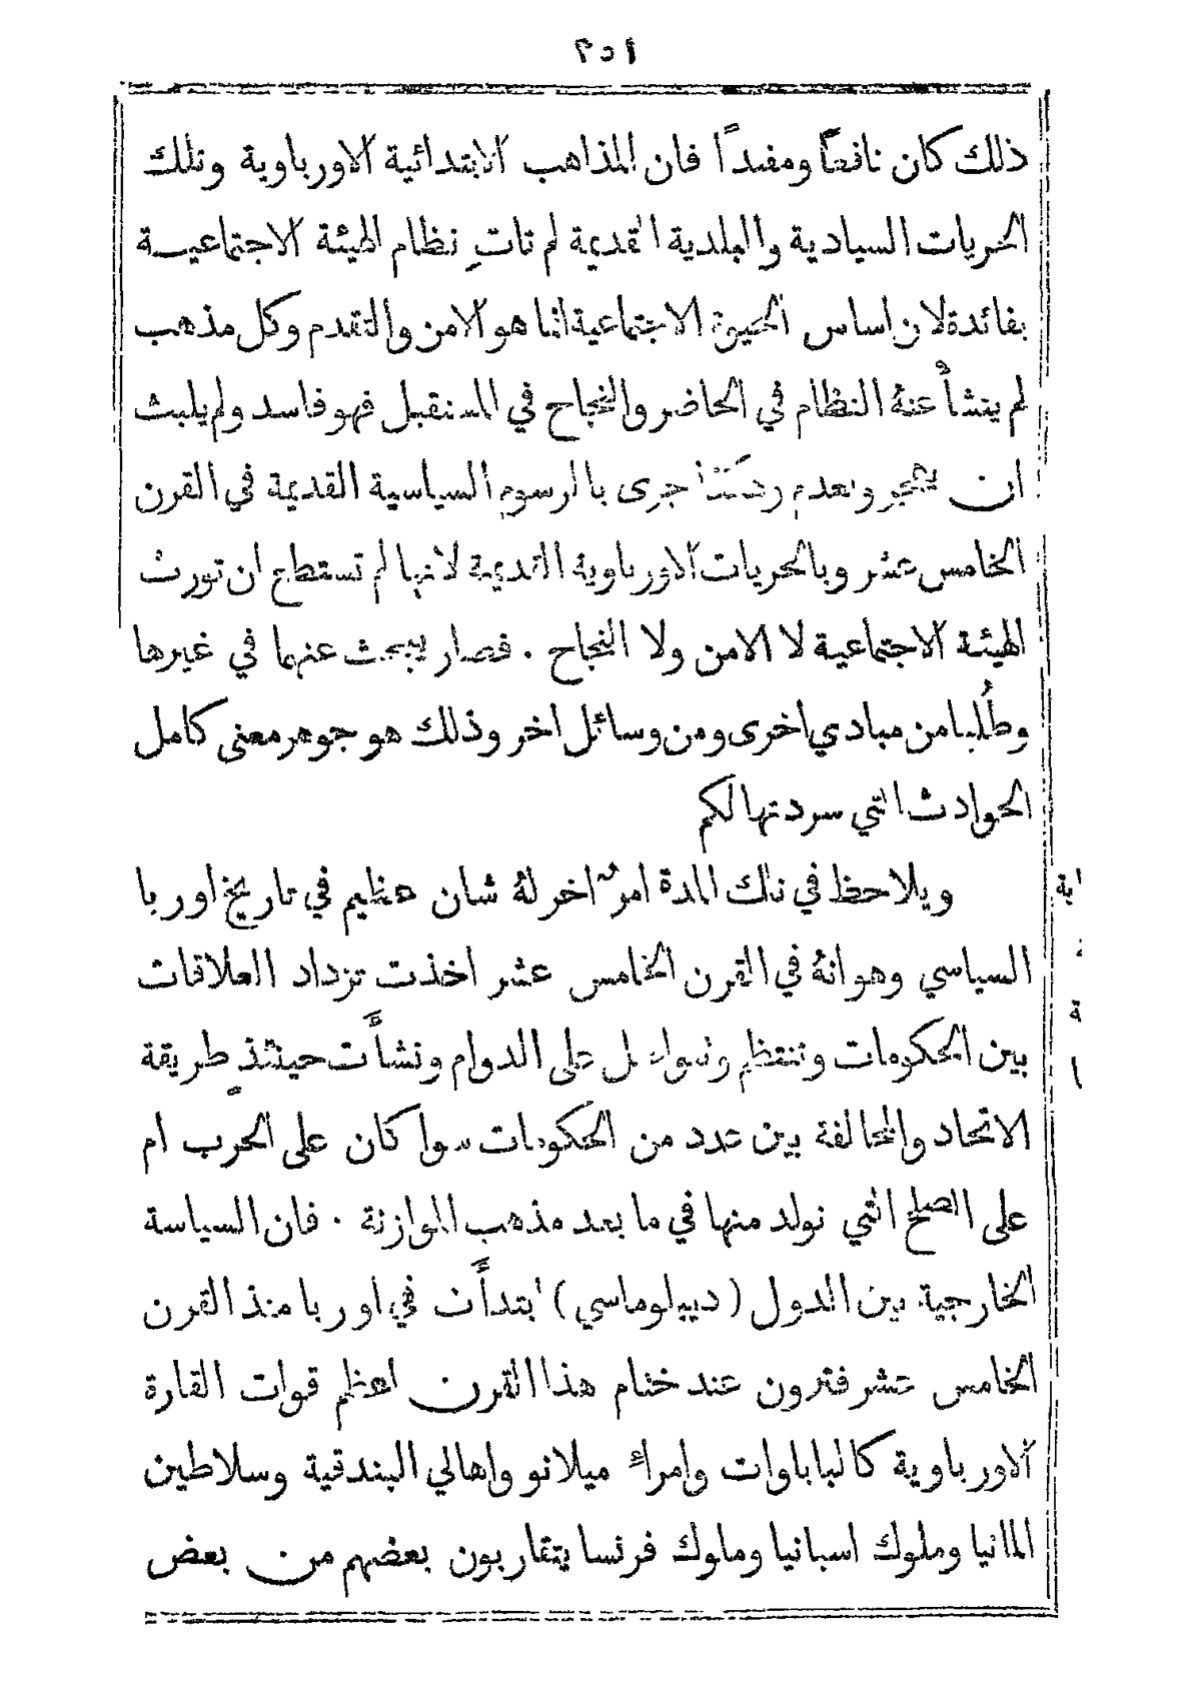 ٢٥١
ذلك كان نافعًا ومفيدًا فان المذاهب الابتدائية الاورباوية وتلك
الحريات السيادية والبلدية القديمة لم تاتِ نظام الهيئة الاجتماعيـة
بفائدة لان اساس الحيوة الاجتماعية انما هو الامن والتقدم وكل مذهب
لم ينشأْ عنهُ النظام في الحاضر والنجاح في المستقبل فهو فاسد ولم يلبث
ان يهجر ويعدم وهكذا جرى بالرسوم السياسية القديمة في القرن
الخامس عشر وبالحريات الاورباوية القديمة لانها لم تستطع ان تورث
الهيئة الاجتماعية لا الامن ولا النجاح . فصار يبحث عنهما في غيرها
وطُلبا من مبادي اخرى ومن وسائل اخر وذلك هو جوهر معنى كامل
الحوادث التي سردتها لكم
ويلاحظ في تلك المدة امرٌ اخر لهُ شان عظيم في تاريخ اوربا
السياسي وهو انهُ في القرن الخامس عشر اخذت تزداد العلاقات
بين الحكومات وتنتظم وتتواصل على الدوام ونشأَت حينئذٍ طريقة
الاتحاد والمخالفة بين عدد من الحكومات سوا كان على الحرب ام
على الصلح التي تولد منها في ما بعد مذهب الموازنة . فان السياسة
الخارجية بين الدول (ديبلوماسي) ابتدأَت في اوربا منذ القرن
الخامس عشر فترون عند ختام هذا القرن اعظم قوات القارة
الاورباوية كالباباوات وامراءِ ميلانو واهالي البندقية وسلاطين
المانيا وملوك اسبانيا وملوك فرنسا يتقاربون بعضهم من بعض